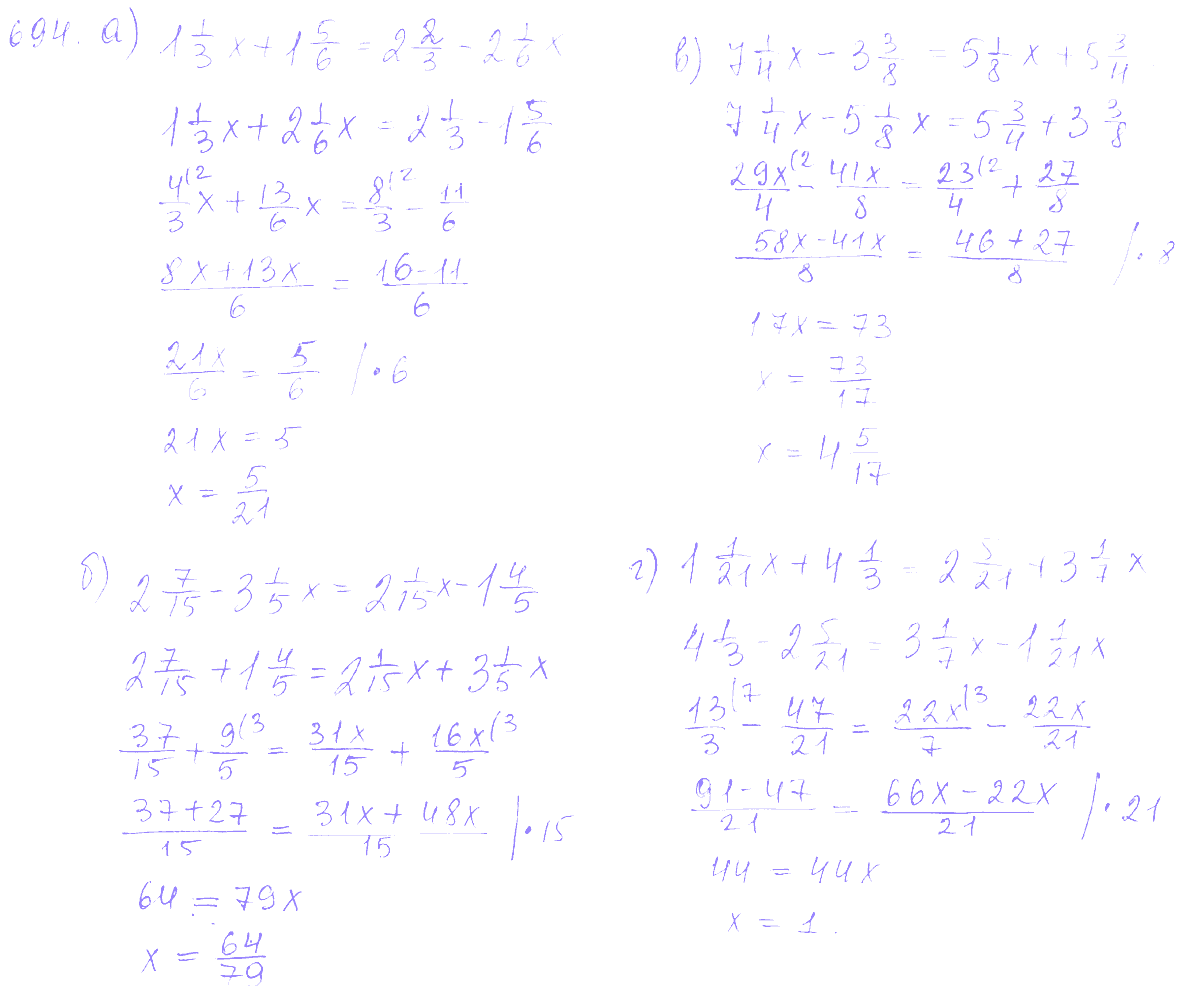 694. а) 1 1/3 x + 1 5/6 = 2 2/3 - 2 1/6 x
1 1/3 x + 2 1/6 x = 2 1/3 - 1 5/6
4(2/3 x + 13/6 x = 8(2/3 - 11/6
8x+13x/6 = 16-11/6
21x/6 = 5/6 / • 6
21x = 5
x = 5/21
б) 2 7/15 - 3 1/5 x = 2 1/15 x - 1 4/5
2 7/15 + 1 4/5 = 2 1/15 x + 3 1/5 x
37/15 + 9(3/5 = 31x/15 + 16x(3/5
37+27/15 = 31x + 48x/15 / • 15
64 = 79x
x = 64/79
в) 7 1/4 x - 3 3/8 = 5 1/8 x + 5 3/4
7 1/4 x - 5 1/8 x = 5 3/4 + 3 3/8
29x(2/4 - 41x/8 = 23(2/4 + 27/8
58x-41x/8 = 46+27/8 / • 8
17x = 73
x = 73/17
x = 4 5/17
г) 1 1/21 x + 4 1/3 = 2 5/21 + 3 1/7 x
4 1/3 - 2 5/21 = 3 1/7 x - 1 1/21 x
13(7/3 - 47/21 = 22x(3/7 - 22x/21
91-47/21 = 66x-22x/21 / • 21
44 = 44x
x = 1.